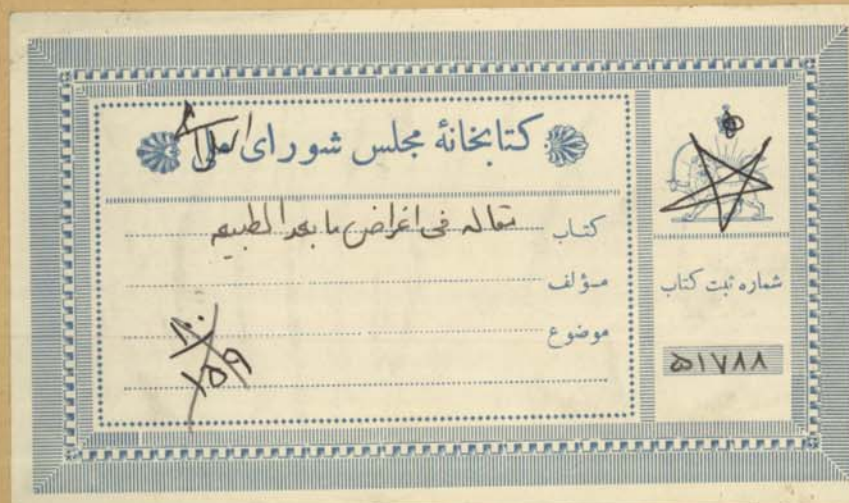 کتابخانهٔ مجلس شورای ملی
کتاب مقاله فی اغراض ما بعد الطبیعه
مؤلف
موضوع
۱۰۰
۱۵۹
شماره ثبت کتاب
۵۱۷۸۸